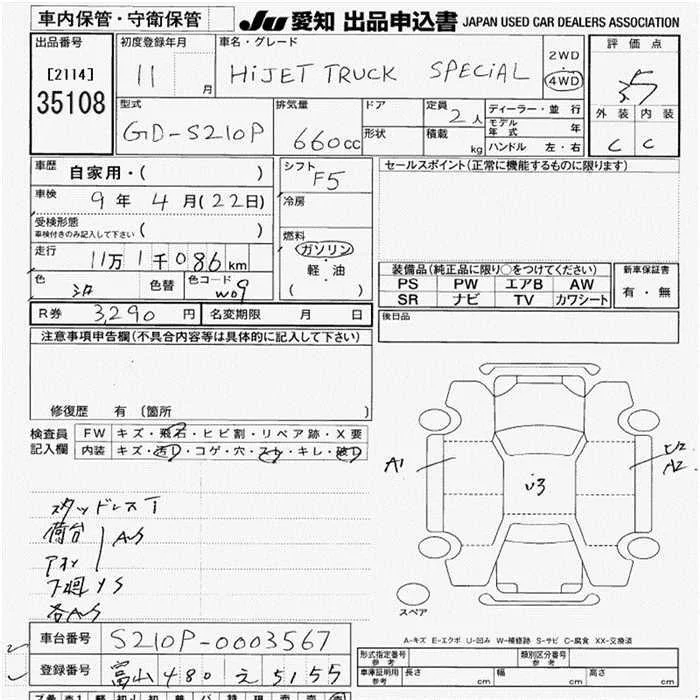 車内保管・守衛保管 JU 愛知 出品申込書 JAPAN USED CAR DEALERS ASSOCIATION
出品番号 初度登録年月 車名・グレード 2WD 評価点
[2114] 11 月 HiJET TRUCK SPECiAL 4WD
35108 外装 内装
型式 排気量 ドア 定員 2人 ディーラー・並行
GD-S210P 660cc 形状 積載 kg モデル年式 年 C C
ハンドル 左・右
車歴 自家用・( ) シフト F5 セールスポイント(正常に機能するものに限ります)
車検 9年 4月(22日) 冷房
受検形態 車検付きのみ記入して下さい ( ) 燃料
走行 11万1千086km ガソリン 装備品(純正品に限り○をつけてください) 新車保証書
軽・油 PS PW エアB AW 有・無
色 シロ 色替 色コード W09 ( ) SR ナビ TV カワシート
R券 3,290円 名変期限 月 日 後日品
注意事項申告欄(不具合内容等は具体的に記入して下さい)
修復歴 有 〔箇所 〕
検査員 FW キズ・飛石・ヒビ割・リペア跡・X要
記入欄 内装 キズ・汚レ・コゲ・穴・スレ・キレ・破レ
A1 U3 U2
A2
スタッドレスT
荷台 AS
アオリ
下廻りS
各AS
スペア
A-キズ E-エクボ U-凹み W-補修跡 S-サビ C-腐食 XX-交換済
車台番号 S210P-0003567
形式指定番号 参考 類別区分番号 参考
登録番号 富山 480 え 5155
車庫証明用 参考 長さ cm 幅 cm 高さ cm